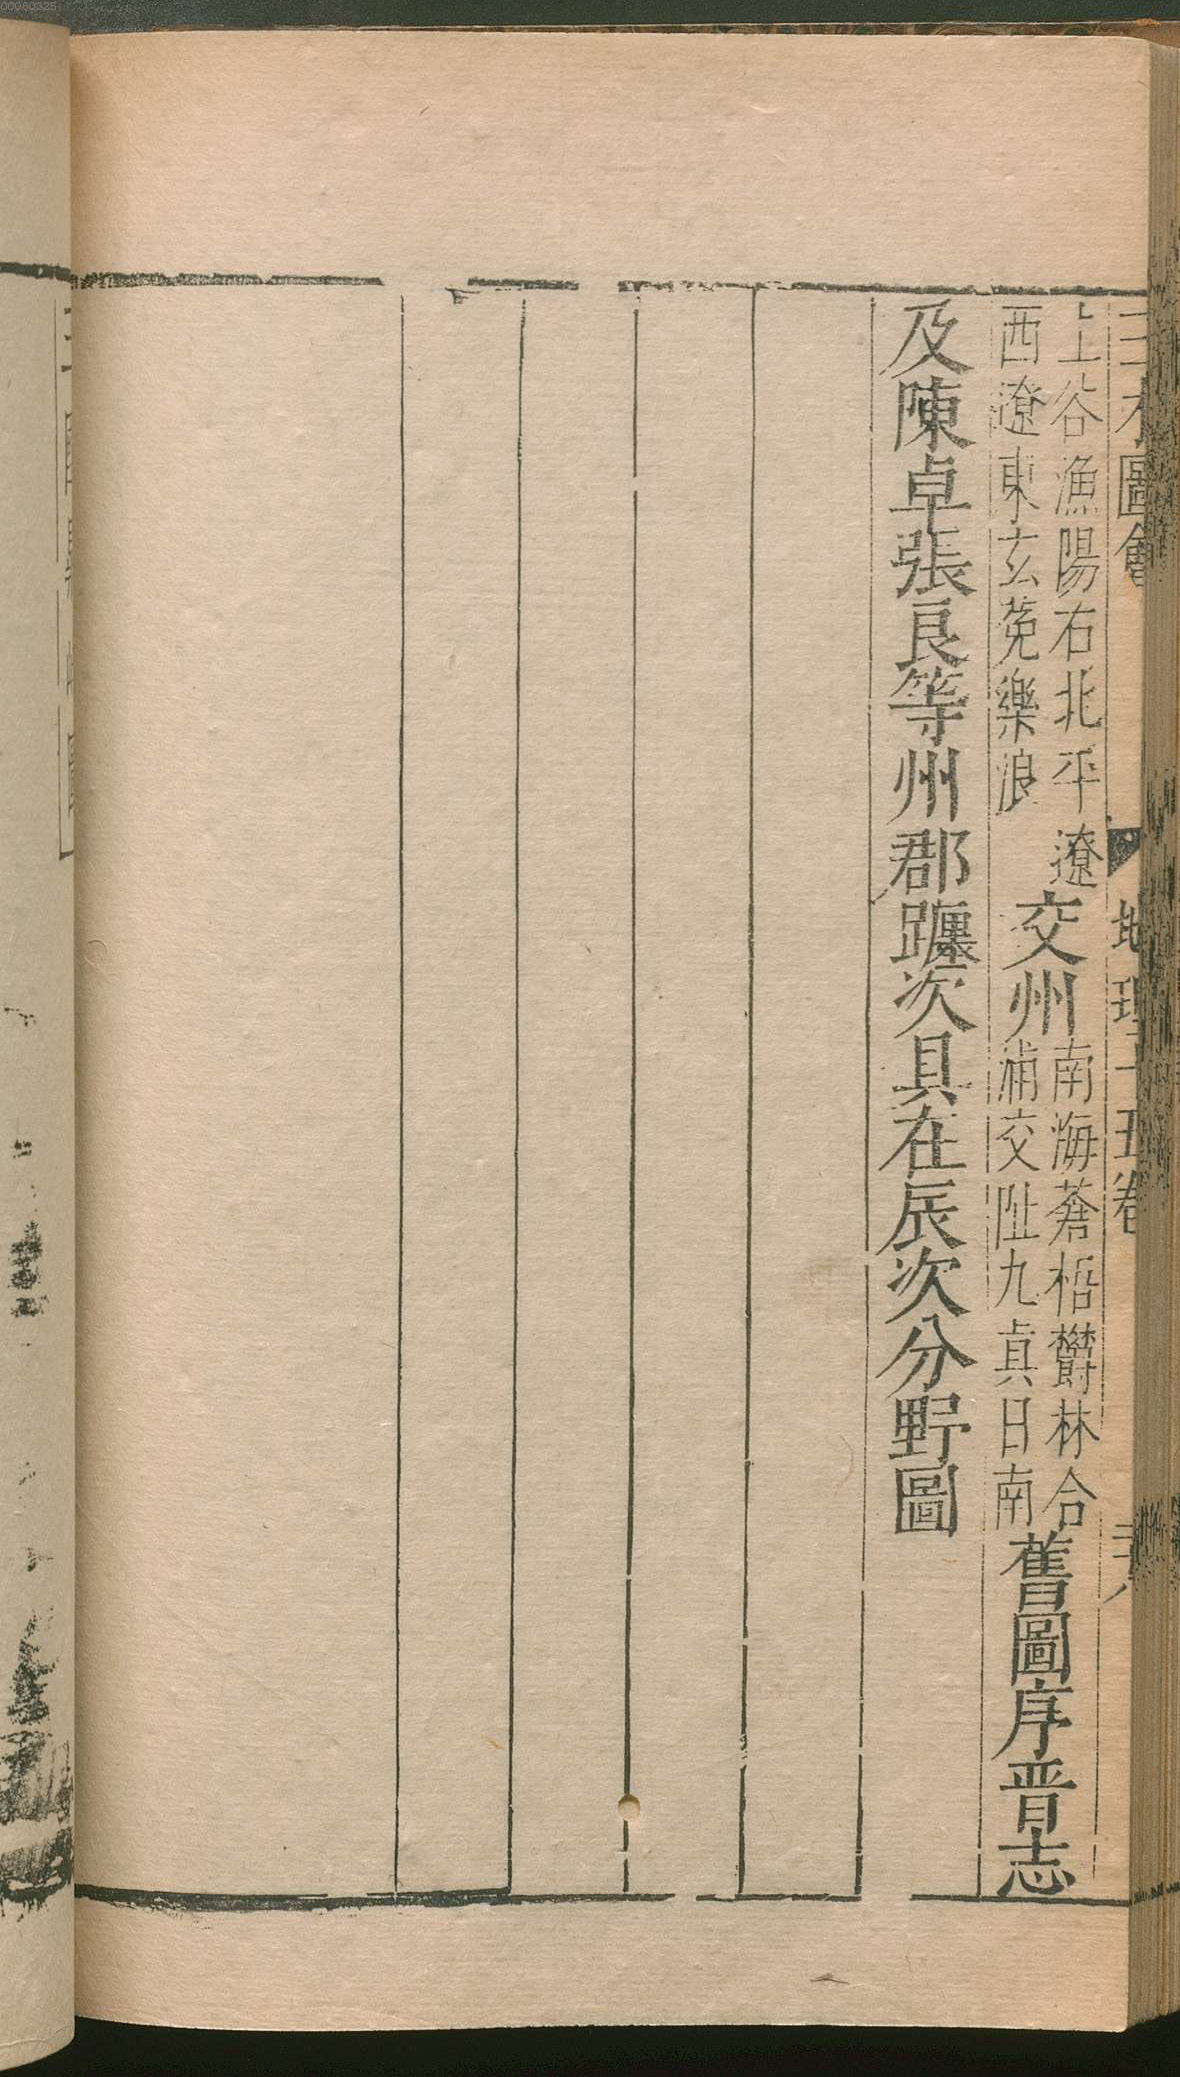 00080325
三才圖會 地理十五卷
上谷漁陽右北平遼
西遼東玄菟樂浪
交州
南海蒼梧欝林合
浦交阯九真日南
舊圖序晋志
及陳卓張良等州郡躔次具在辰次分野圖